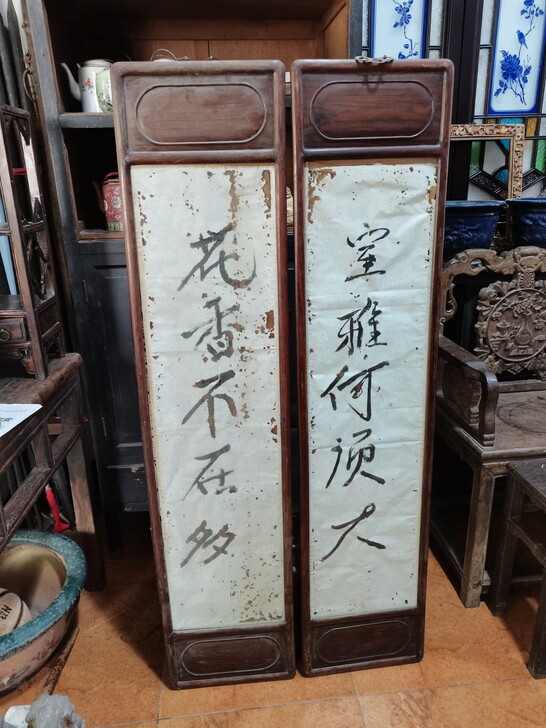 室雅何须大
花香不在多